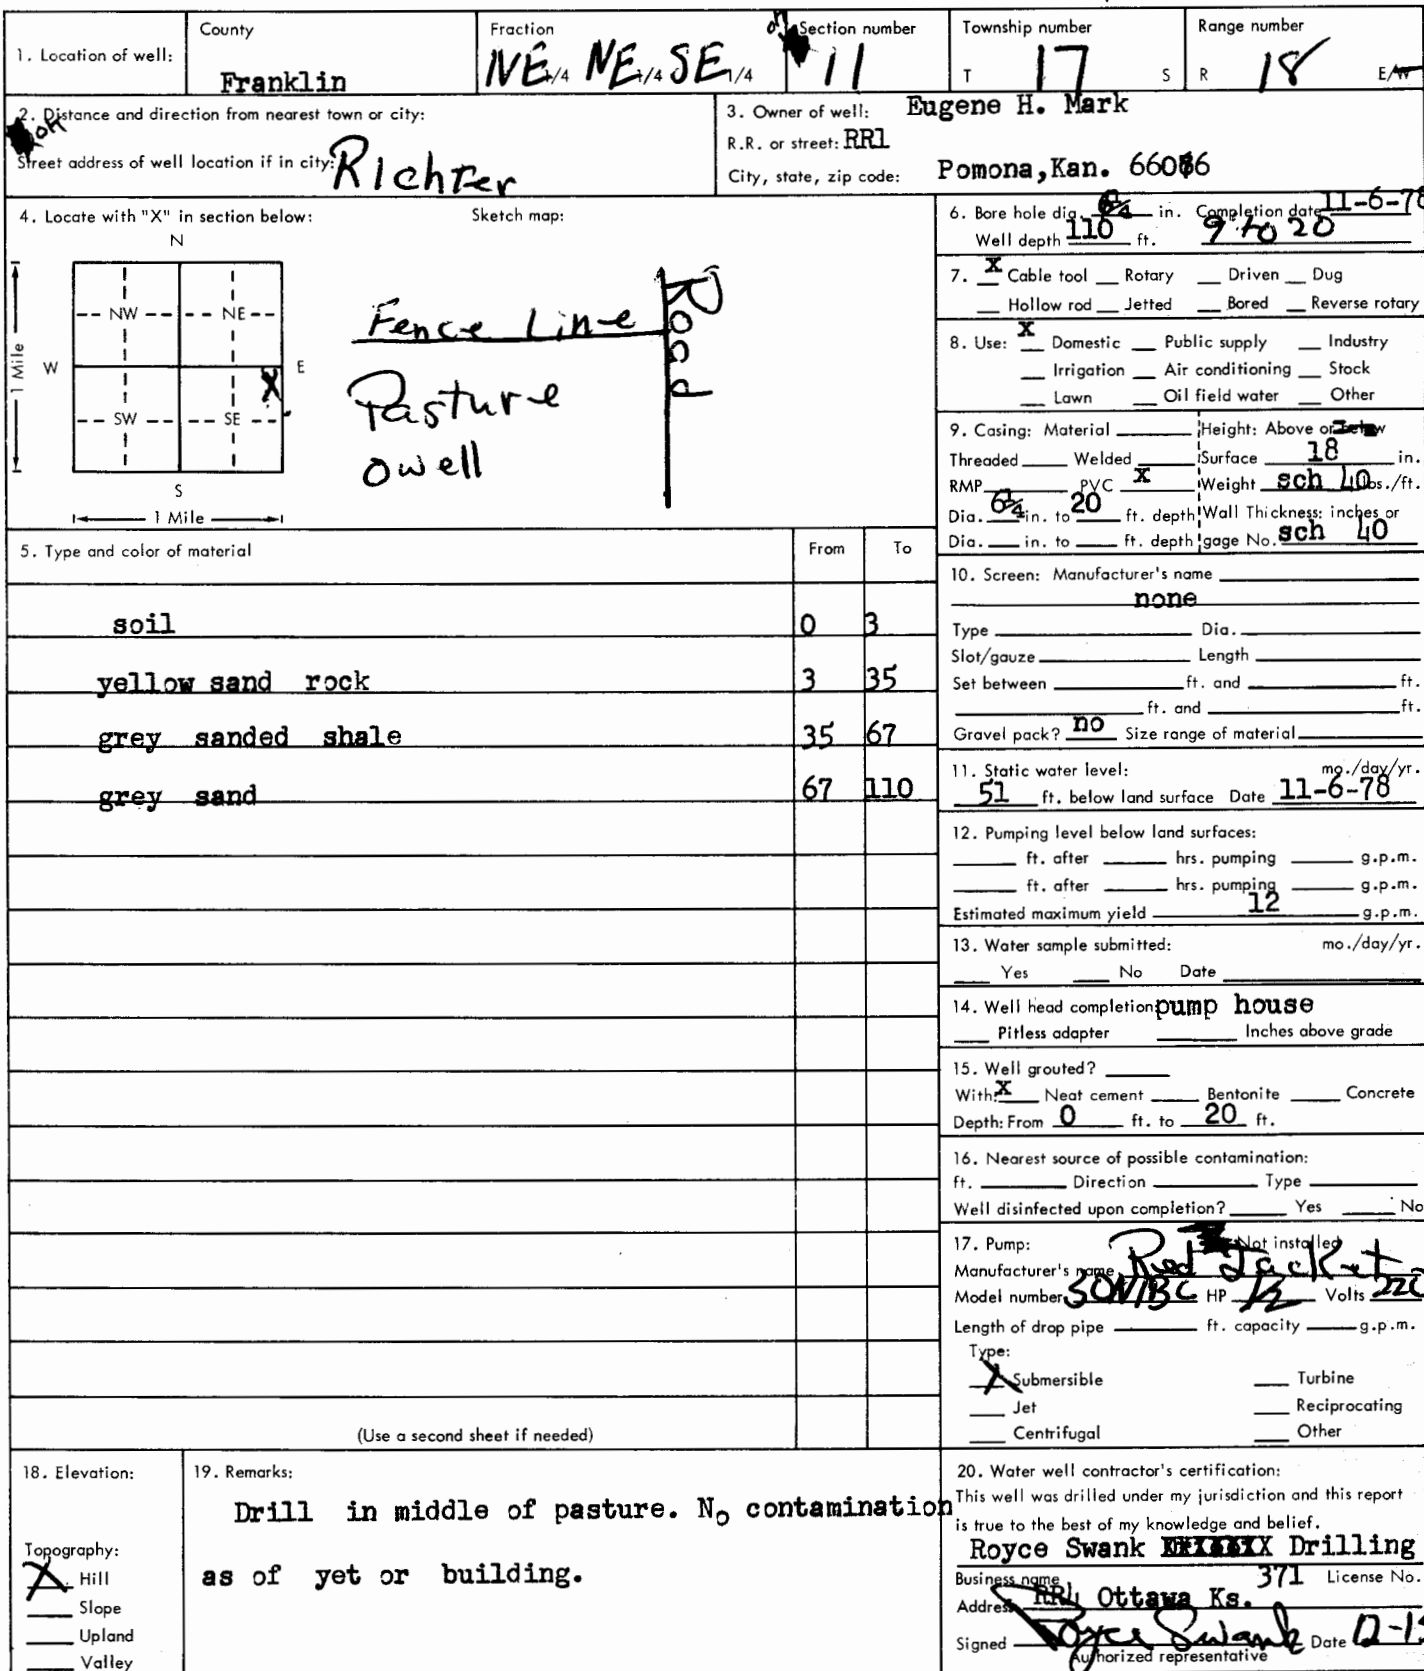 1. Location of well: County Franklin Fraction NE 1/4 NE 1/4 SE 1/4 Section number 11 Township number T 17 S Range number R 18 E/W
2. Distance and direction from nearest town or city:
Street address of well location if in city: Richter
3. Owner of well: Eugene H. Mark
R.R. or street: RR1
City, state, zip code: Pomona,Kan. 66076
4. Locate with "X" in section below: Sketch map:
N
NW NE
W E
X
SW SE
S
1 Mile
1 Mile
Fence Line
Road
Pasture
o well
5. Type and color of material From To
soil 0 3
yellow sand rock 3 35
grey sanded shale 35 67
grey sand 67 110
(Use a second sheet if needed)
6. Bore hole dia. in. Completion date 11-6-78
Well depth 110 ft. 9 to 20
7. X Cable tool __ Rotary __ Driven __ Dug
__ Hollow rod __ Jetted __ Bored __ Reverse rotary
8. Use: X Domestic __ Public supply __ Industry
__ Irrigation __ Air conditioning __ Stock
__ Lawn __ Oil field water __ Other
9. Casing: Material ____ Height: Above or below
Threaded ____ Welded ____ Surface 18 in.
RMP ____ PVC X Weight sch 40 lbs./ft.
Dia. in. to 20 ft. depth Wall Thickness: inches or
Dia. ____ in. to ____ ft. depth gage No. sch 40
10. Screen: Manufacturer's name ____
none
Type ____ Dia. ____
Slot/gauze ____ Length ____
Set between ____ ft. and ____ ft.
____ ft. and ____ ft.
Gravel pack? no Size range of material ____
11. Static water level: mo./day/yr.
51 ft. below land surface Date 11-6-78
12. Pumping level below land surfaces:
____ ft. after ____ hrs. pumping ____ g.p.m.
____ ft. after ____ hrs. pumping ____ g.p.m.
Estimated maximum yield 12 g.p.m.
13. Water sample submitted: mo./day/yr.
____ Yes ____ No Date ____
14. Well head completion pump house
____ Pitless adapter ____ Inches above grade
15. Well grouted? ____
With: X Neat cement ____ Bentonite ____ Concrete
Depth: From 0 ft. to 20 ft.
16. Nearest source of possible contamination:
ft. ____ Direction ____ Type ____
Well disinfected upon completion? ____ Yes ____ No
17. Pump: Not installed
Manufacturer's name Red Jacket
Model number HP 1/2 Volts 220
Length of drop pipe ____ ft. capacity ____ g.p.m.
Type:
X Submersible ____ Turbine
____ Jet ____ Reciprocating
____ Centrifugal ____ Other
18. Elevation:
Topography:
X Hill
____ Slope
____ Upland
____ Valley
19. Remarks:
Drill in middle of pasture. No contamination
as of yet or building.
20. Water well contractor's certification:
This well was drilled under my jurisdiction and this report
is true to the best of my knowledge and belief.
Royce Swank Drilling
Business name 371 License No.
Address Ottawa Ks.
Signed Royce Swank Date
Authorized representative